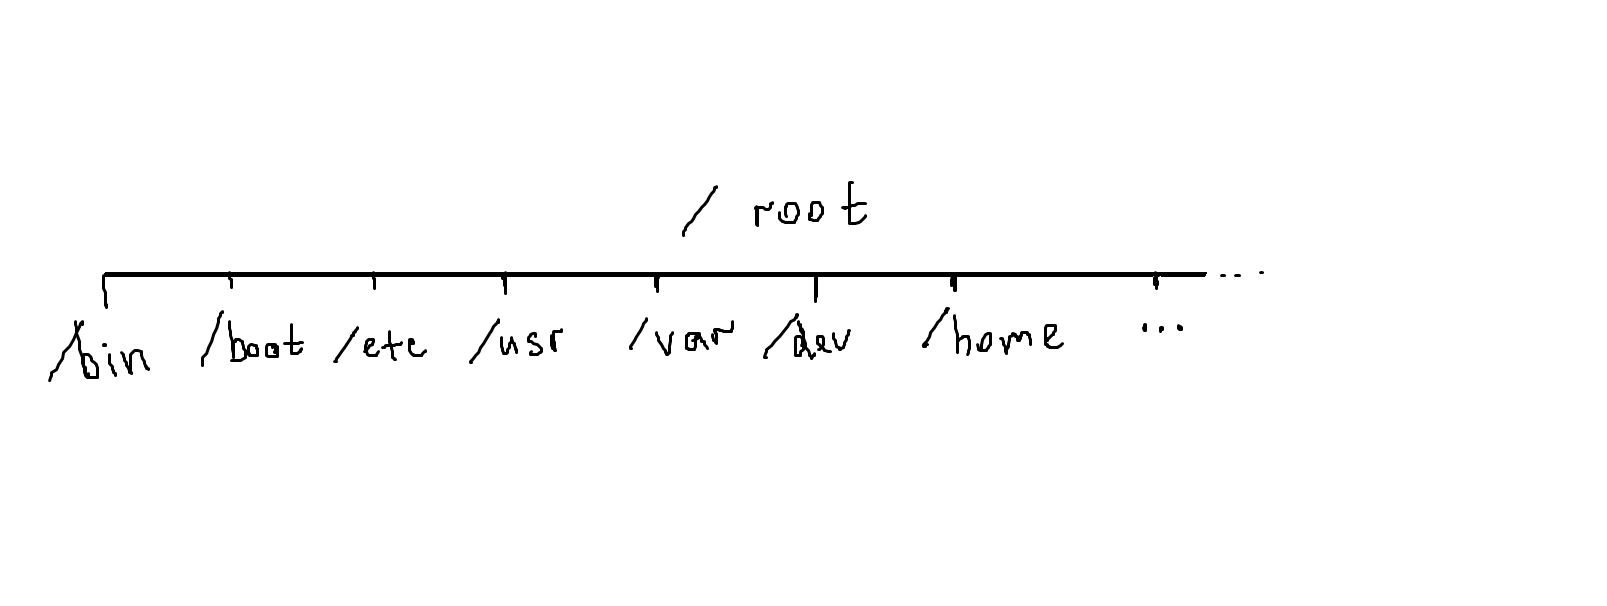 / root
/bin /boot /etc /usr /var /dev /home ...